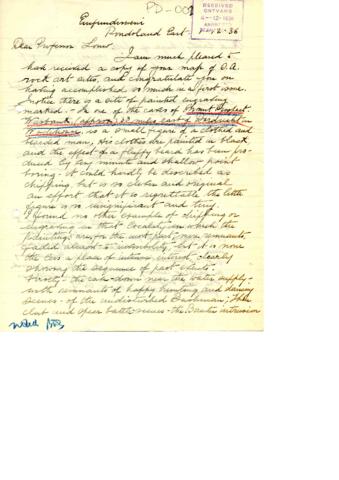 PD-002
RECEIVED
Emfundisweni
Pondoland East
Dear Professor Lowe
I am much pleased to
have received a copy of your map of S.A.
rock art sites, and congratulate you on
having accomplished so much in a first issue.
I notice there is a site of painted engraving
marked. In one of the caves of
is a small figure of a clothed and
bearded man, His clothes are painted in black
and the effect of a fluffy beard has been pro-
duced by tiny minute and shallow point
boring. It could hardly be described as
chipping, but is so clever and original
an effort that it is regrettable the little
figure is so insignificant and tiny.
I found no other example of chipping or
engraving in that locality in which the
paintings are, for the most part, mere remnants,
faded almost to invisibility, but it is none
the less a place of intense interest, clearly
showing the sequence of past events.
Firstly - the cave down near the water supply -
with remnants of happy hunting and dancing
scenes - of the undisturbed Bushman; then
club and spear battle scenes - the Bantu intrusion
noted